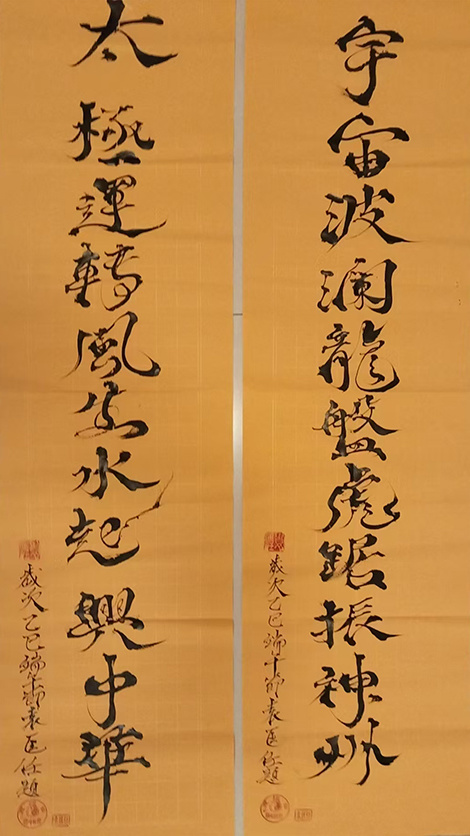 宇宙波瀾龍盤虎鋸振神州
歲次乙巳端午節袁匡任題
太極運轉風生水起興中華
歲次乙巳端午節袁匡任題